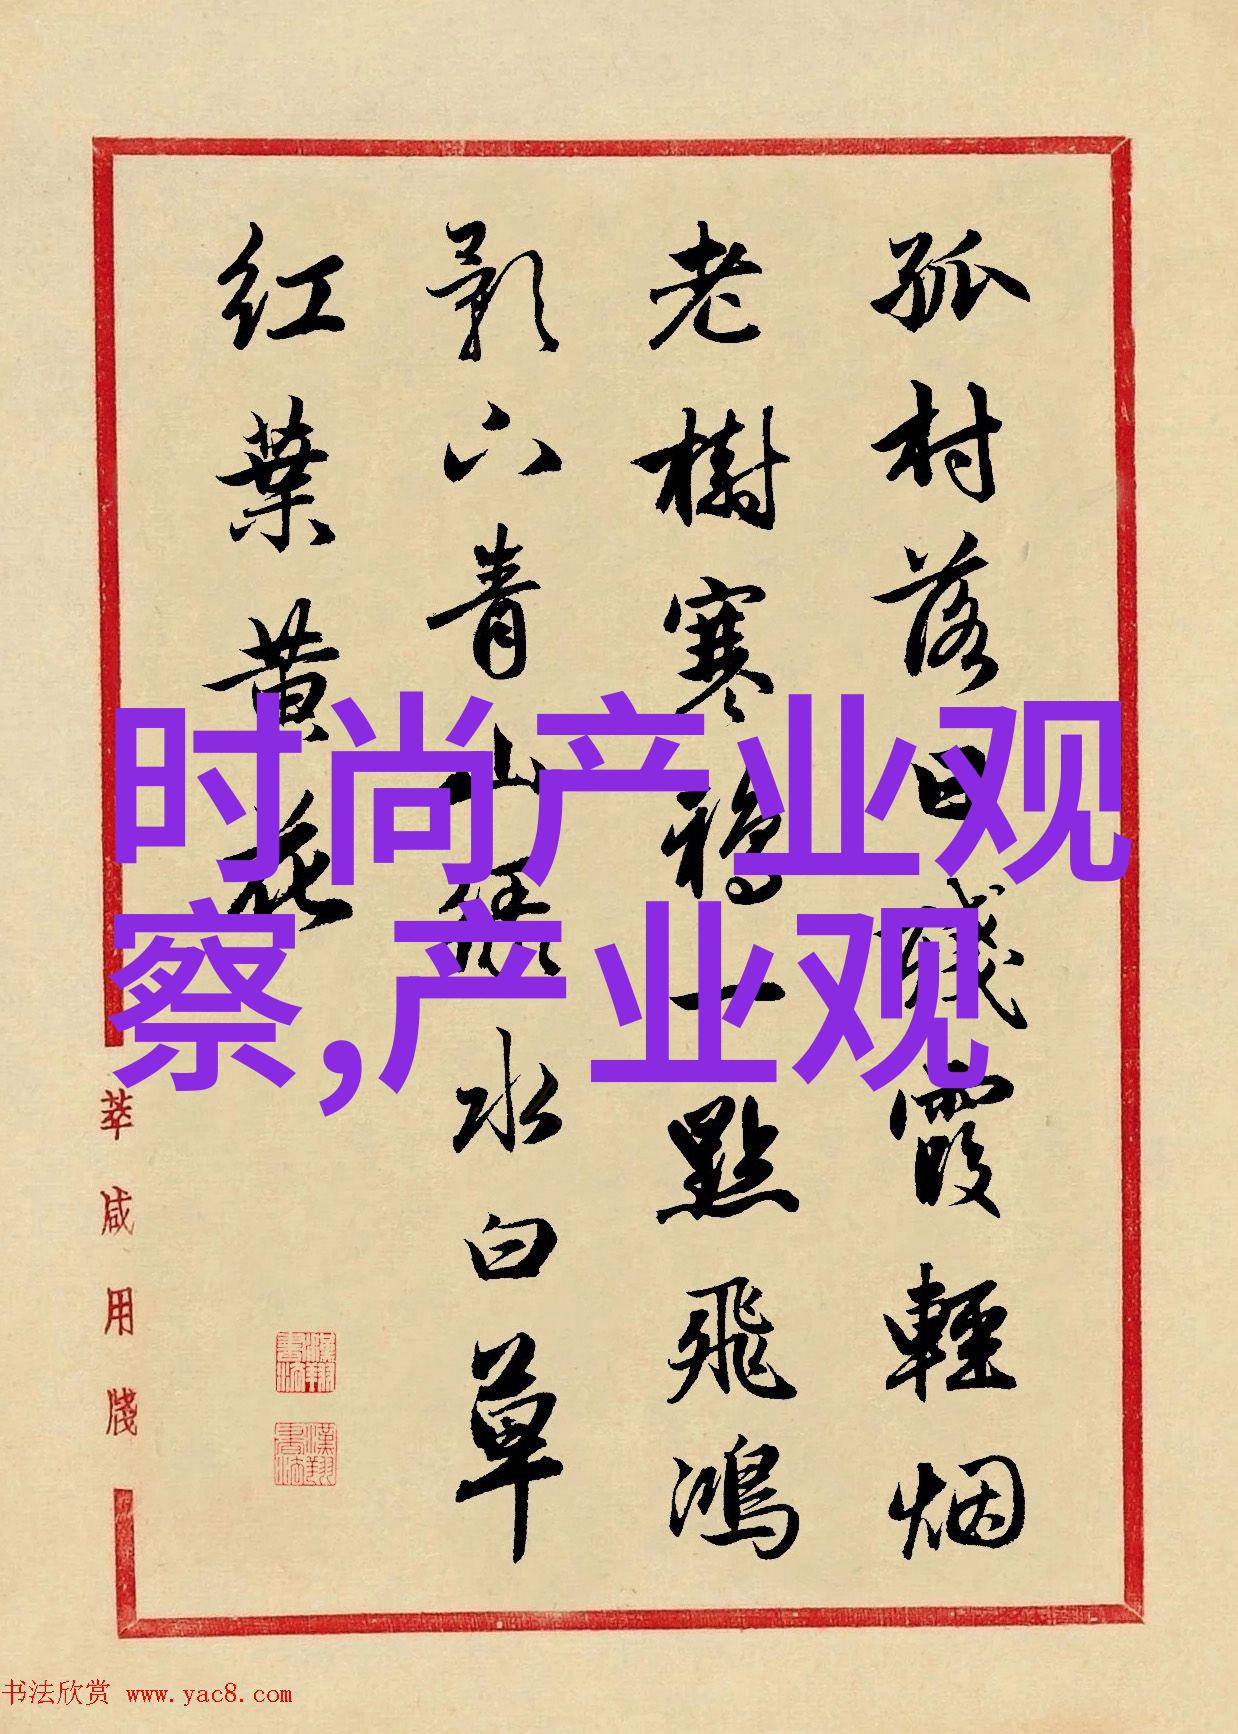 孤村落日残霞輕烟
老樹寒鴉一點飛鴻
影下青山緑水白草
红葉黄花
时尚产业观
察,产业观
莘咸用牋
书法欣赏 www.yac8.com